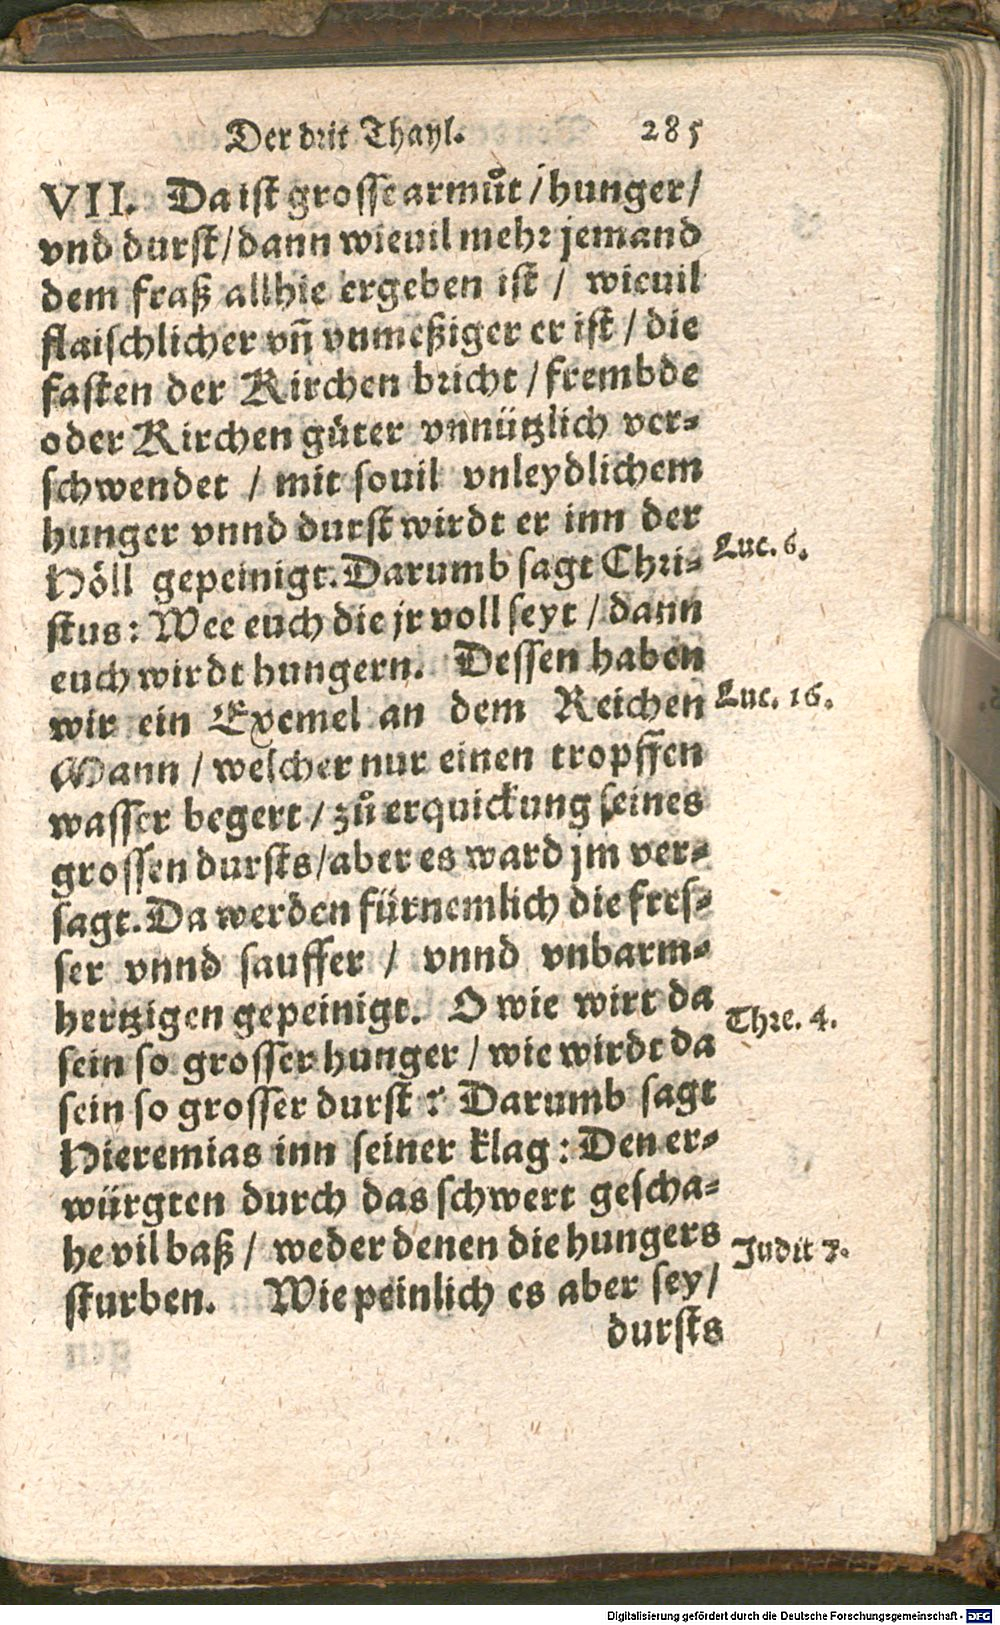 Der drit Thayl. 285
VII. Da ist grosse armůt / hunger /
vnd durst / dann wieuil mehr jemand
dem fraß allhie ergeben ist / wieuil
flaischlicher vñ vnmeßiger er ist / die
fasten der Kirchen bricht / frembde
oder Kirchen güter vnnützlich ver-
schwendet / mit souil vnleydlichem
hunger vnnd durst wirdt er inn der
Höll gepeinigt. Darumb sagt Chri-
Luc. 6.
stus: Wee euch die jr voll seyt / dann
euch wirdt hungern. Dessen haben
wir ein Exemel an dem Reichen
Luc. 16.
Mann / welcher nur einen tropffen
wasser begert / zů erquickung seines
grossen dursts / aber es ward jm ver-
sagt. Da werden fürnemlich die fres-
ser vnnd sauffer / vnnd vnbarm-
hertzigen gepeinigt. O wie wirt da
Thre. 4.
sein so grosser hunger / wie wirdt da
sein so grosser durst? Darumb sagt
Hieremias inn seiner klag: Den er-
würgten durch das schwert gescha-
he vil baß / weder denen die hungers
Judit 7.
sturben. Wie peinlich es aber sey /
dursts
Digitalisierung gefördert durch die Deutsche Forschungsgemeinschaft - DFG